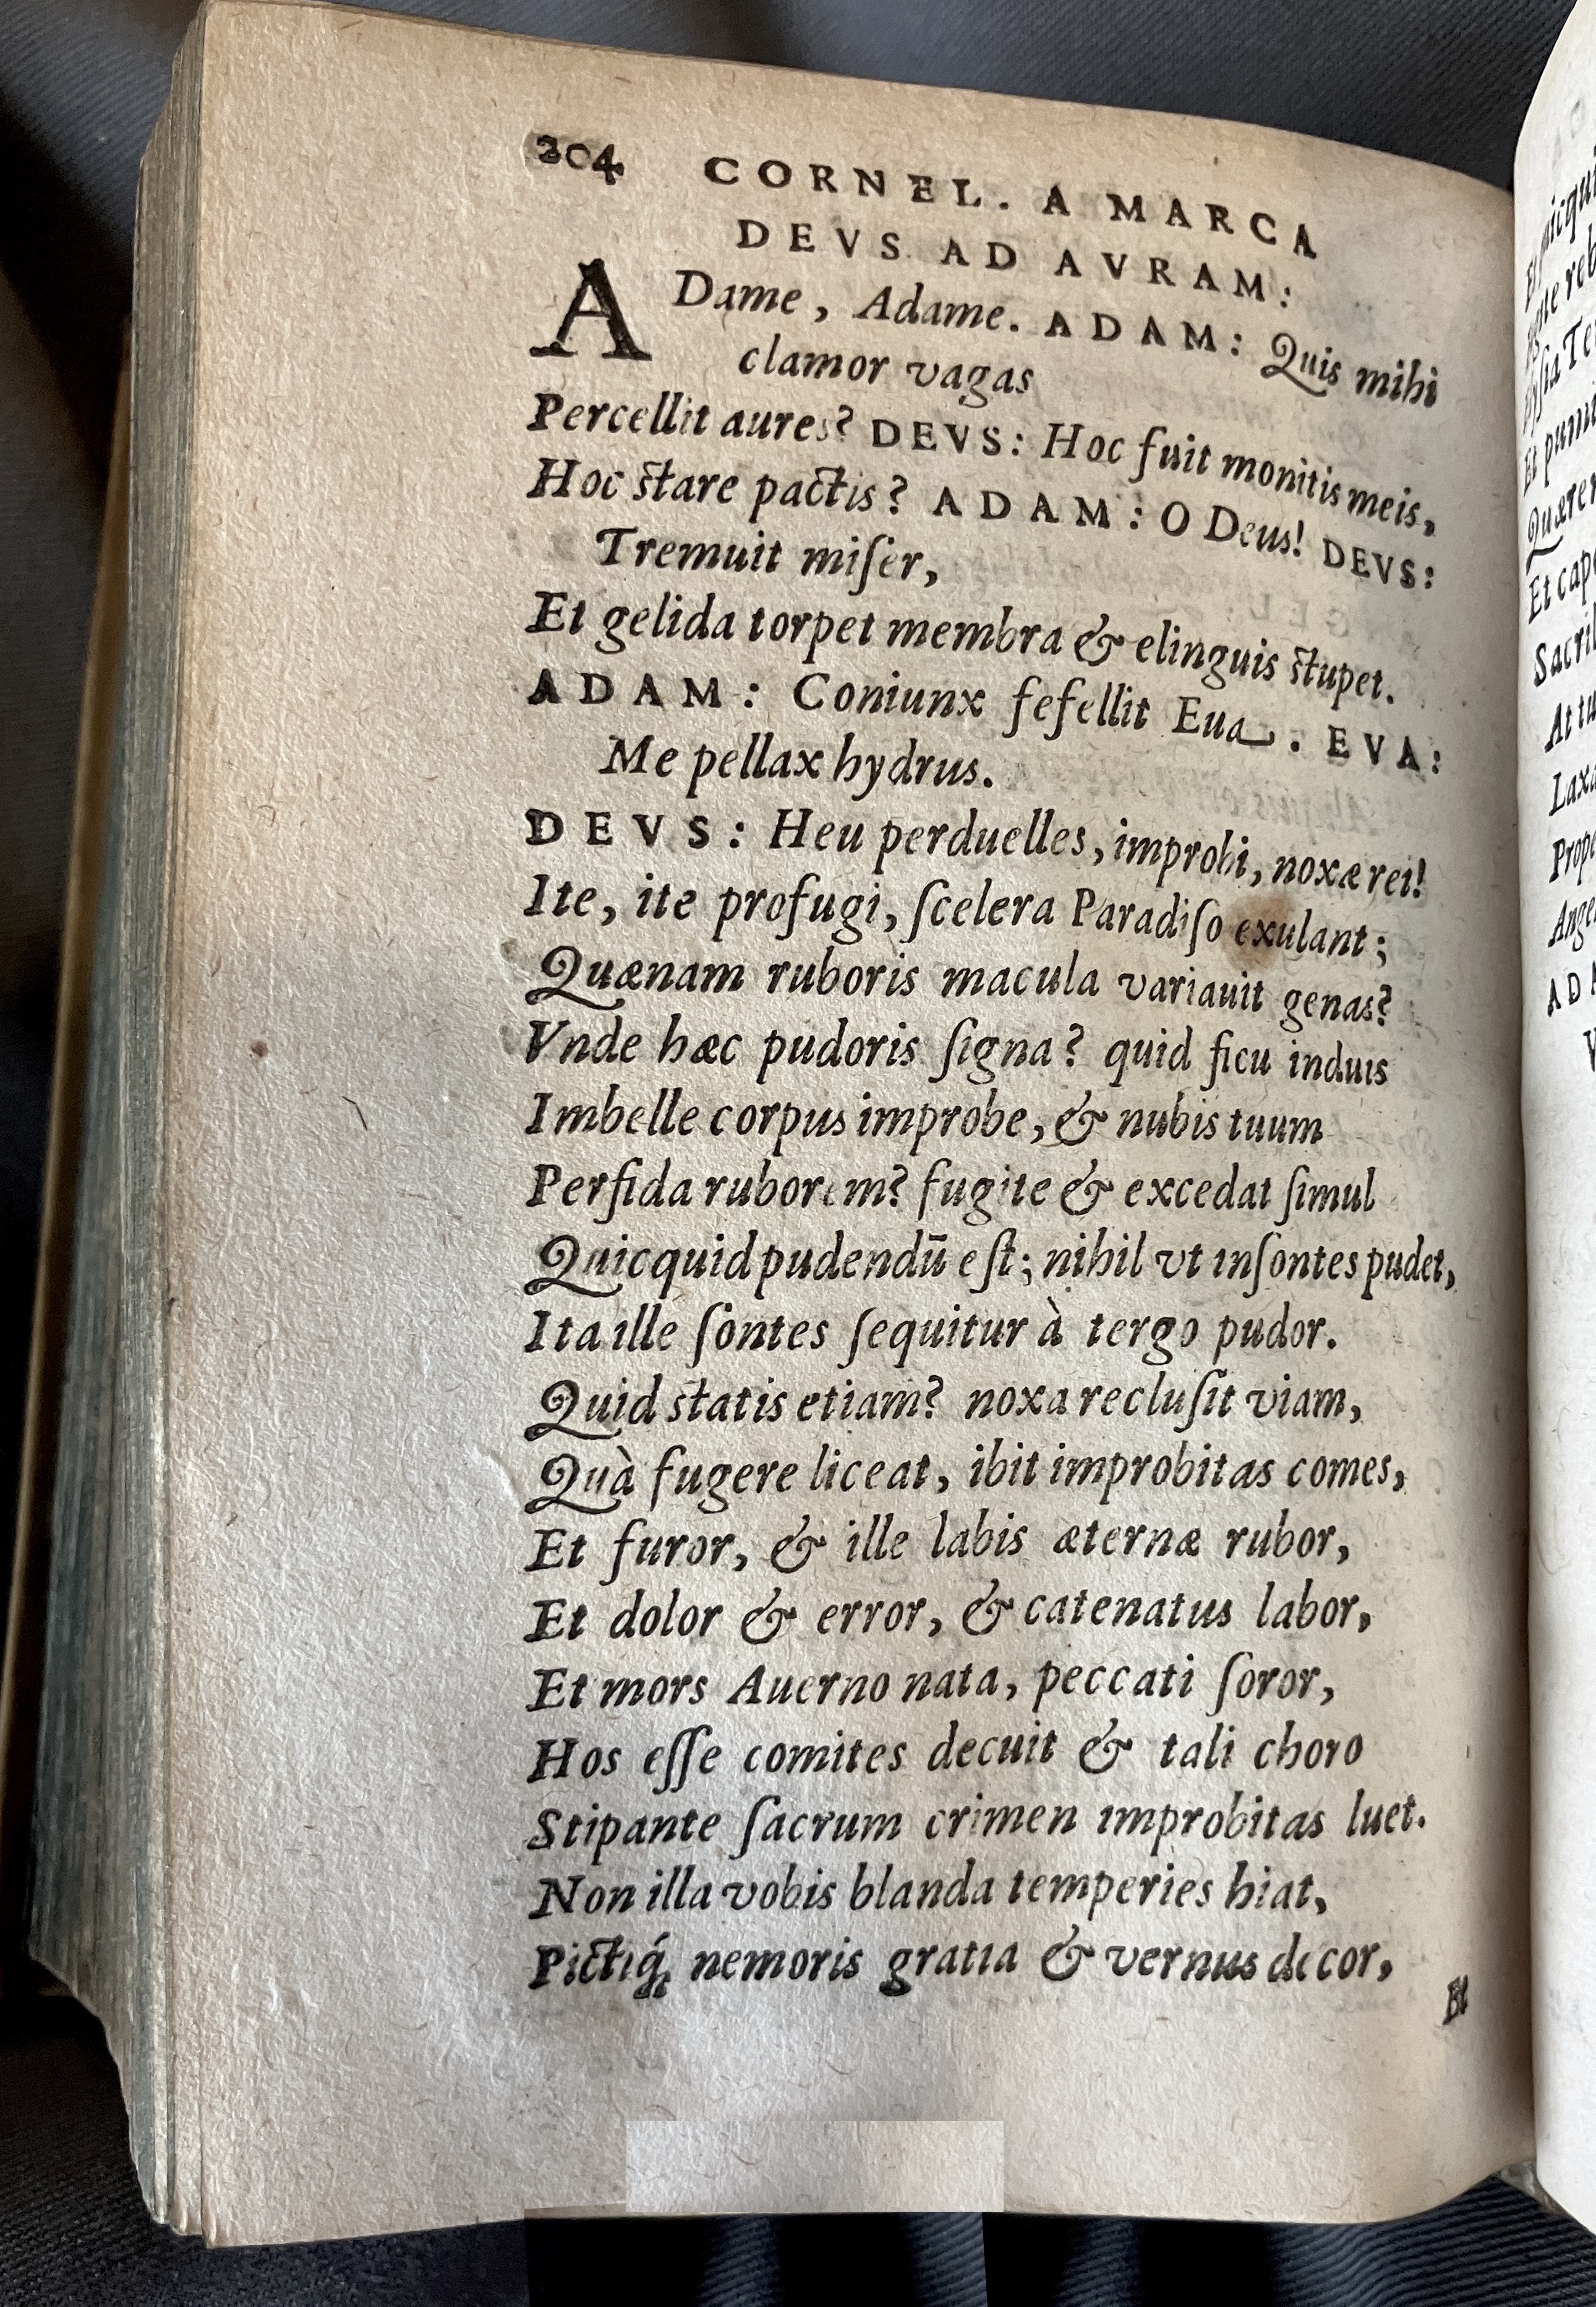 304 CORNEL. A MARCA
DEVS AD AVRAM:
ADame, Adame. ADAM: Quis mihi
clamor vagas
Percellit aures? DEVS: Hoc fuit monitis meis,
Hoc stare pactis? ADAM: O Deus! DEVS:
Tremuit miſer,
Et gelida torpet membra & elinguis stupet.
ADAM: Coniunx fefellit Eua. EVA:
Me pellax hydrus.
DEVS: Heu perduelles, improbi, noxæ rei!
Ite, ite profugi, ſcelera Paradiſo exulant;
Quænam ruboris macula variauit genas?
Vnde hæc pudoris ſigna? quid ficu induis
Imbelle corpus improbe, & nubis tuum
Perfida ruborem? fugite & excedat ſimul
Quicquid pudendū eſt; nihil vt inſontes pudet,
Ita ille ſontes ſequitur à tergo pudor.
Quid statis etiam? noxa recluſit viam,
Quà fugere liceat, ibit improbitas comes,
Et furor, & ille labis æternæ rubor,
Et dolor & error, & catenatus labor,
Et mors Auerno nata, peccati ſoror,
Hos eſſe comites decuit & tali choro
Stipante ſacrum crimen improbitas luet.
Non illa vobis blanda temperies hiat,
Pictiq́; nemoris gratia & vernus decor,
Et